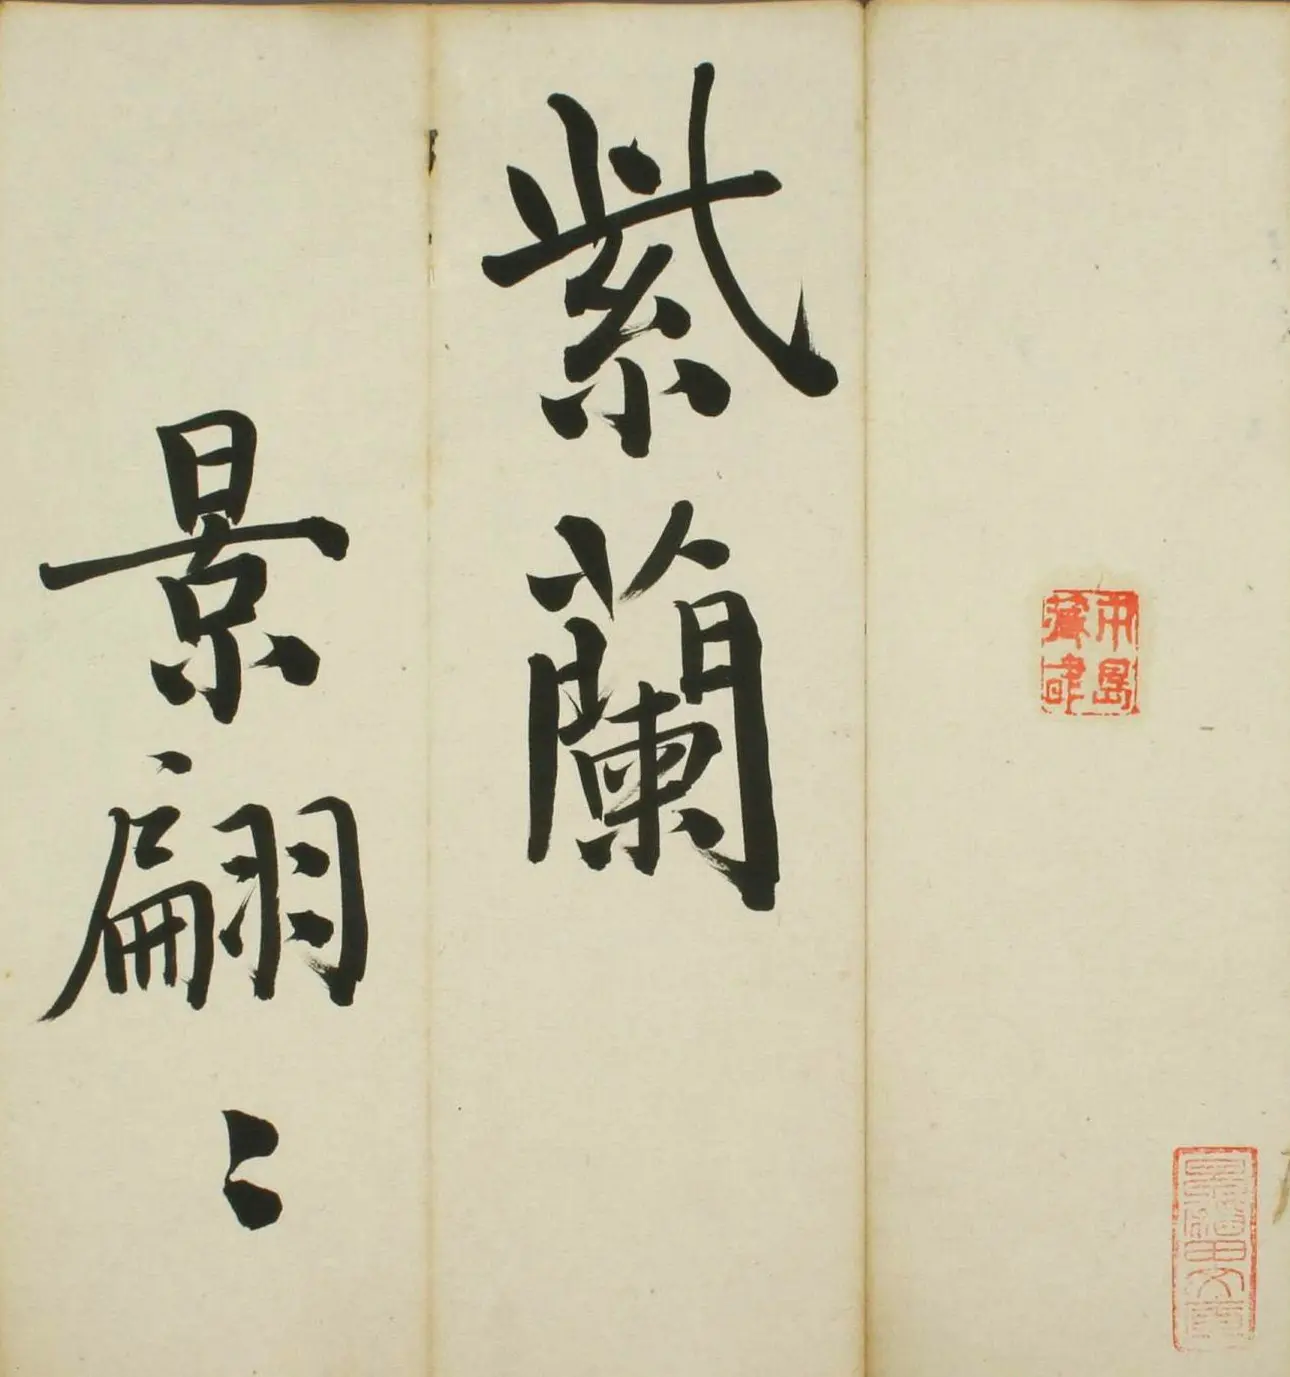 紫蘭
景翩〻